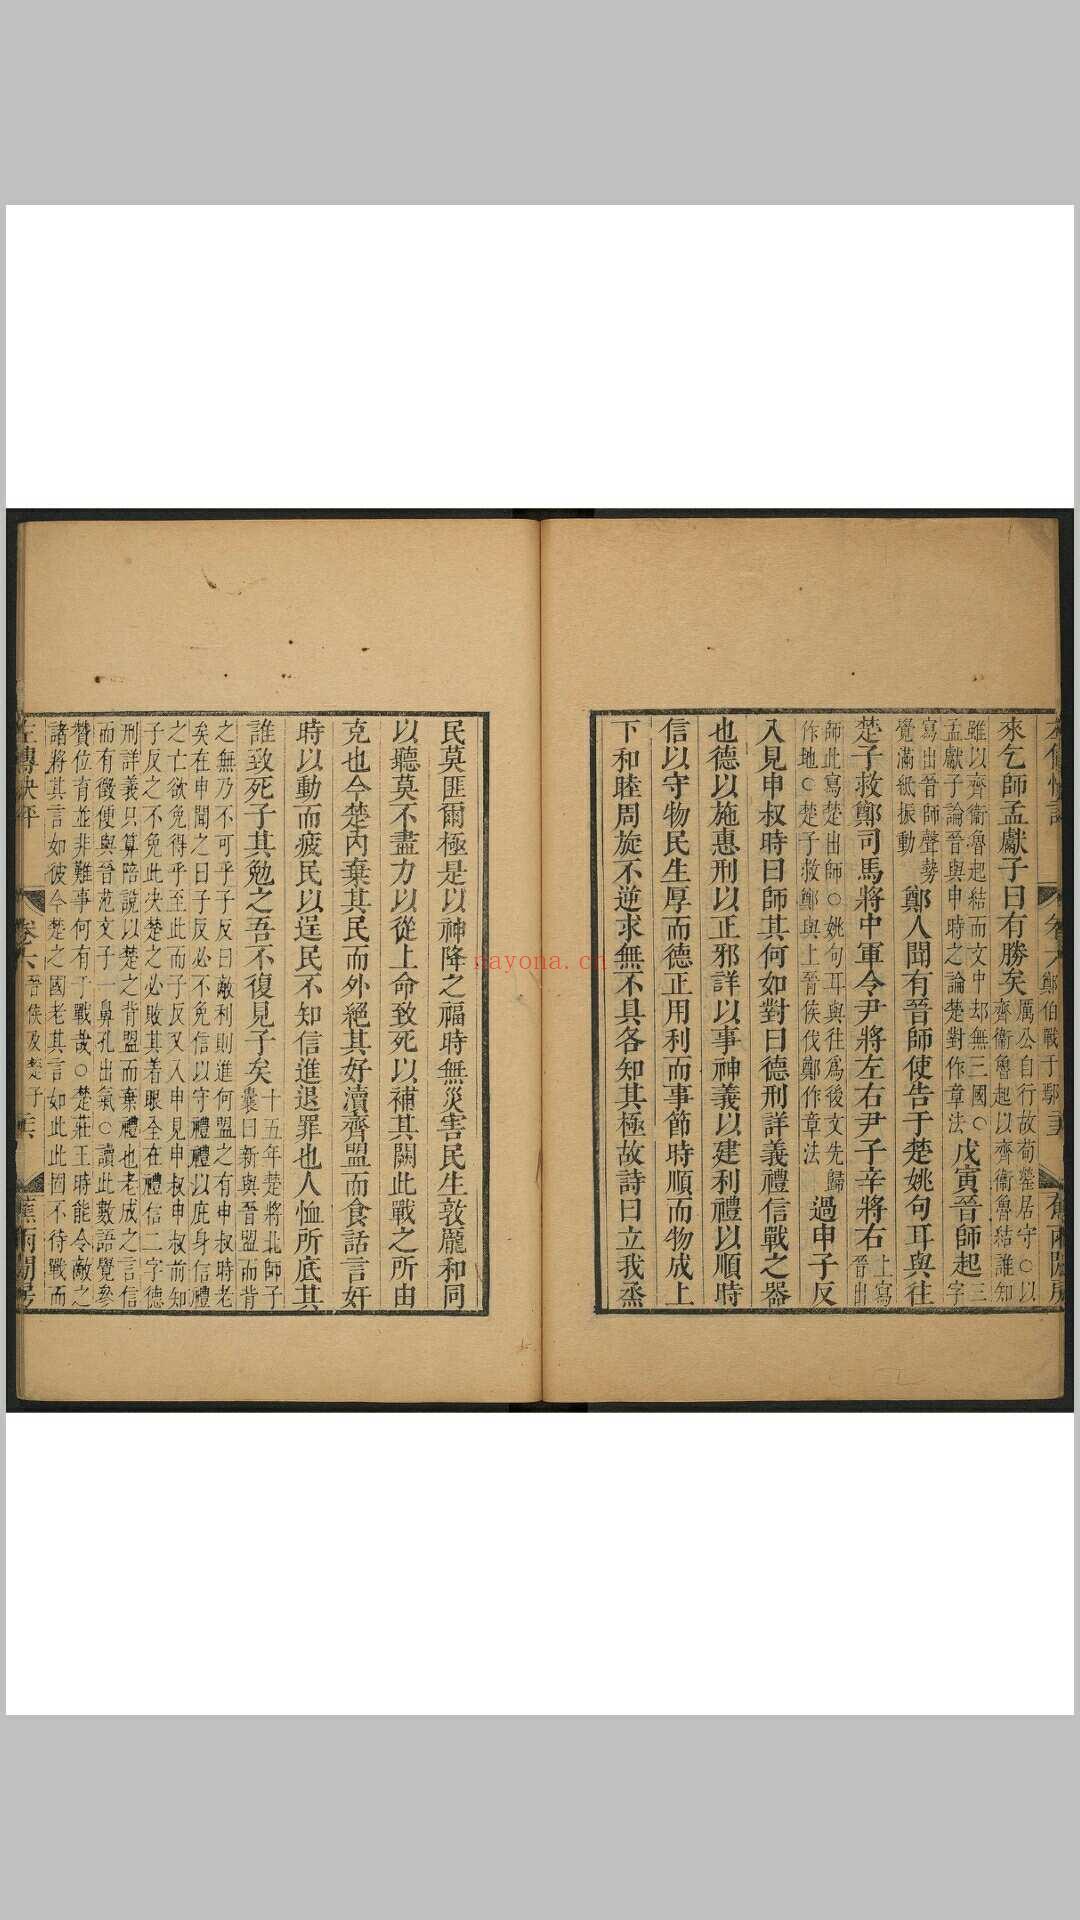 來乞師孟獻子曰有勝矣厲公自行故荀罃居守○以
齊衞魯起以齊衞魯結誰知
雖以齊衞魯起結而文中却無三國○
孟獻子論晉與申時之論楚對作章法戊寅晉師起三字
寫出晉師聲勢
覺滿紙振動鄭人聞有晉師使告于楚姚句耳與往
楚子救鄭司馬將中軍令尹將左右尹子辛將右上寫
晉出
師此寫楚出師○姚句耳與往爲後文先歸
作地○楚子救鄭與上晉侯伐鄭作章法過申子反
入見申叔時曰師其何如對曰德刑詳義禮信戰之器
也德以施惠刑以正邪詳以事神義以建利禮以順時
信以守物民生厚而德正用利而事節時順而物成上
下和睦周旋不逆求無不具各知其極故詩曰立我烝
民莫匪爾極是以神降之福時無災害民生敦厖和同
以聽莫不盡力以從上命致死以補其闕此戰之所由
克也今楚內棄其民而外絕其好瀆齊盟而食話言奸
時以動而疲民以逞民不知信進退罪也人恤所底其
誰致死子其勉之吾不復見子矣十五年楚將北師子
囊曰新與晉盟而背
之無乃不可乎子反曰敵利則進何盟之有申叔時老
矣在申聞之曰子反必不免信以守禮禮以庇身信禮
之亡欲免得乎至此而子反又入申見申叔申叔前知
子反之不免此決楚之必敗其着眼全在禮信二字德
刑詳義只算陪說以楚之背盟而棄禮也老成之言信
而有徵便與晉范文子一鼻孔出氣○讀此數語覺參
贊位育並非難事何有于戰哉○楚莊王時能令敵之
諸將其言如彼今楚之國老其言如此此固不待戰而
左傳快評 卷六 蕉雨閒房
nayona.cn